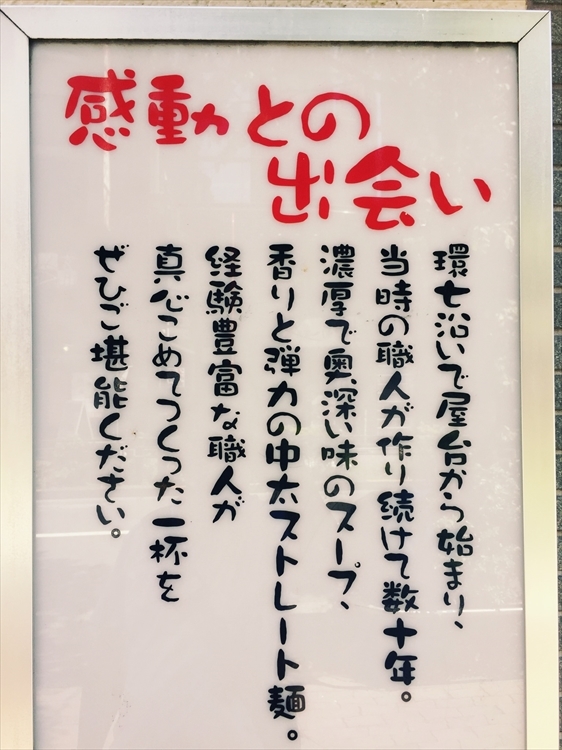 感動との
出会い
環七沿いで屋台から始まり、
当時の職人が作り続けて数十年。
濃厚で奥深い味のスープ、
香りと弾力の中太ストレート麺。
経験豊富な職人が
真心こめてつくった一杯を
ぜひご堪能ください。